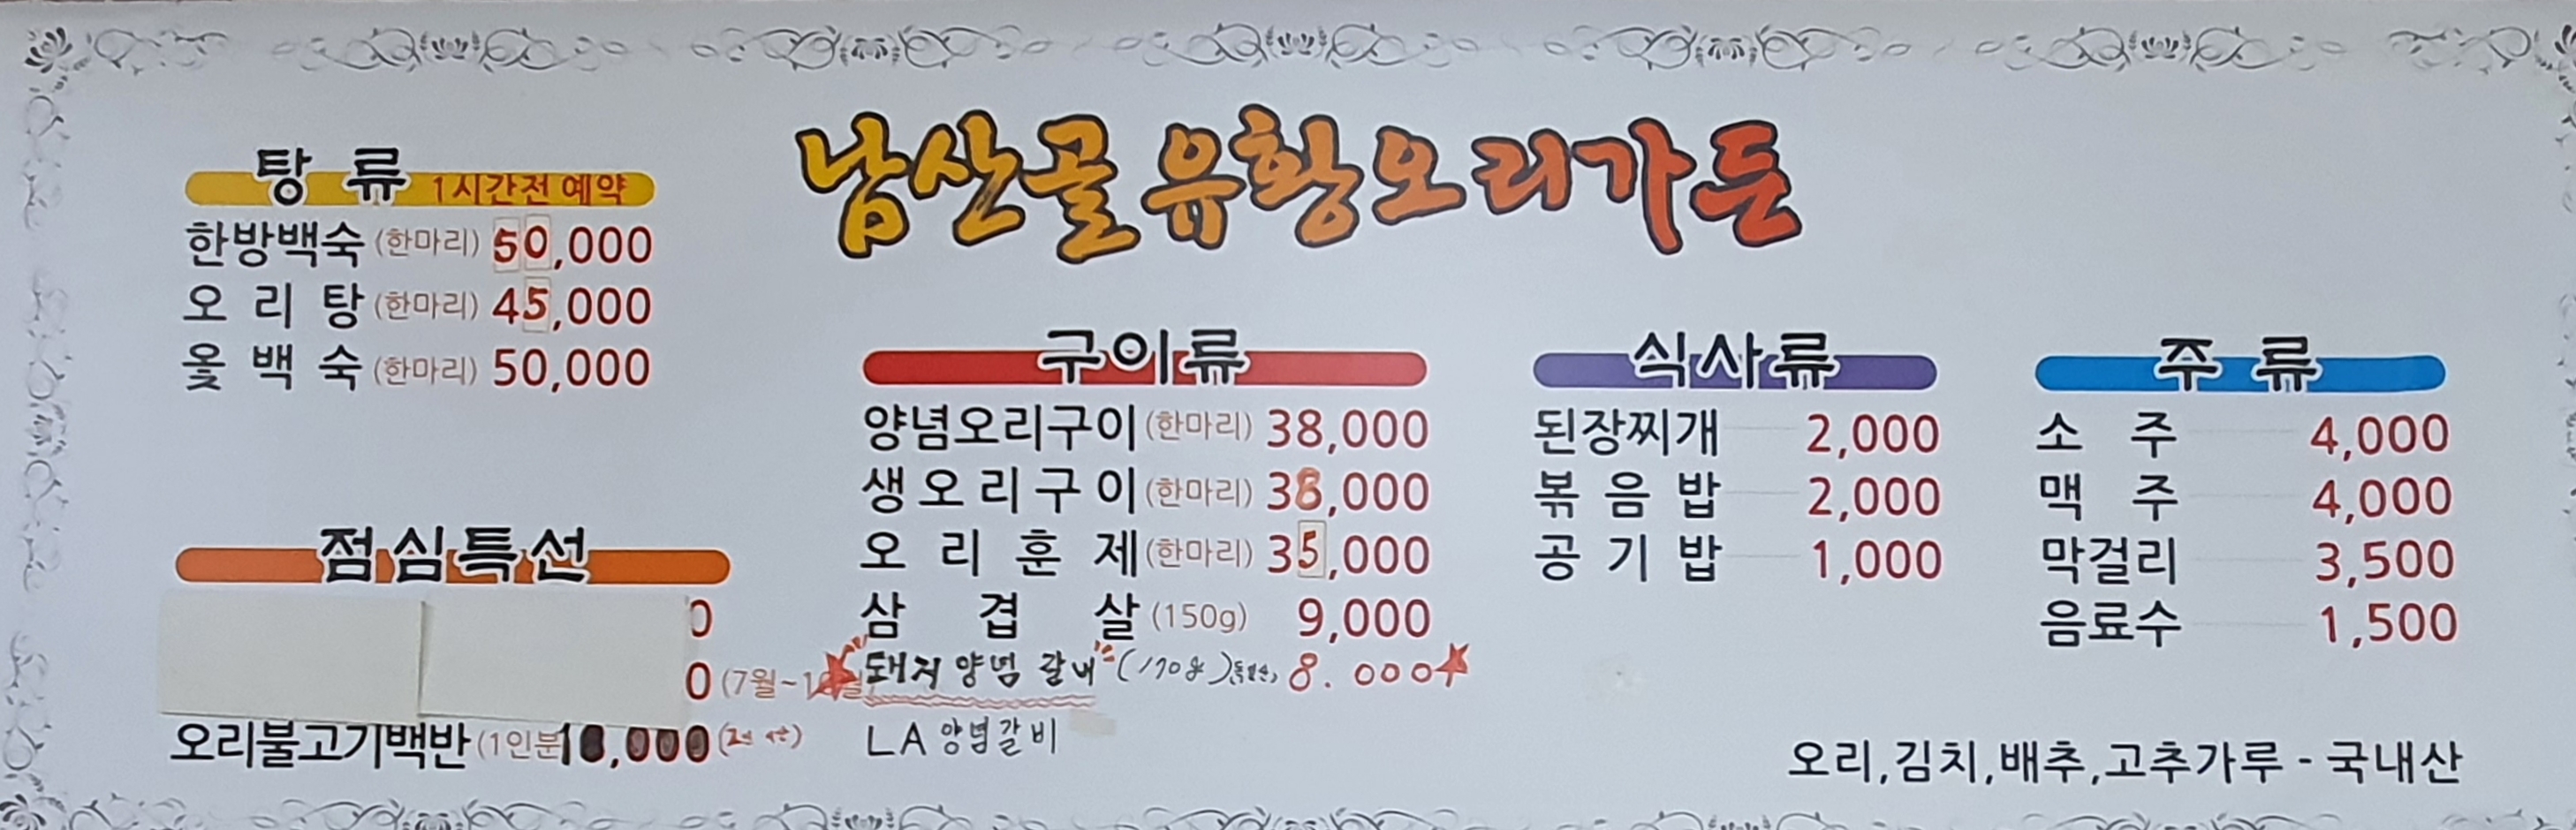 남산골 유황오리가든
탕 류 1시간전 예약
한방백숙 (한마리) 50,000
오 리 탕 (한마리) 45,000
옻 백 숙 (한마리) 50,000
점심특선
0
0 (7월~1
오리불고기백반 (1인분 10,000
구이류
양념오리구이 (한마리) 38,000
생오리구이 (한마리) 38,000
오 리 훈 제 (한마리) 35,000
삼 겹 살 (150g) 9,000
돼지 양념 갈비 (170g) 8.000
LA 양념갈비
식사류
된장찌개 2,000
볶 음 밥 2,000
공 기 밥 1,000
주 류
소 주 4,000
맥 주 4,000
막걸리 3,500
음료수 1,500
오리,김치,배추,고추가루 - 국내산